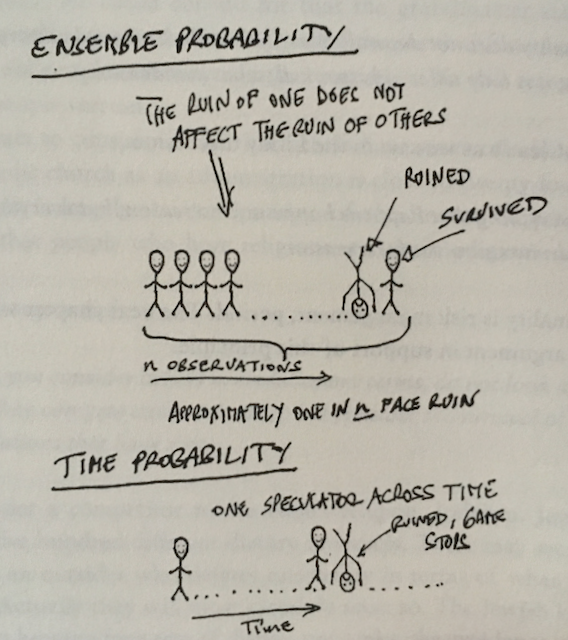 ENSEMBLE PROBABILITY
THE RUIN OF ONE DOES NOT
AFFECT THE RUIN OF OTHERS
RUINED
SURVIVED
n OBSERVATIONS
APPROXIMATELY ONE IN n FACE RUIN
TIME PROBABILITY
ONE SPECULATOR ACROSS TIME
RUINED, GAME
STOPS
TIME